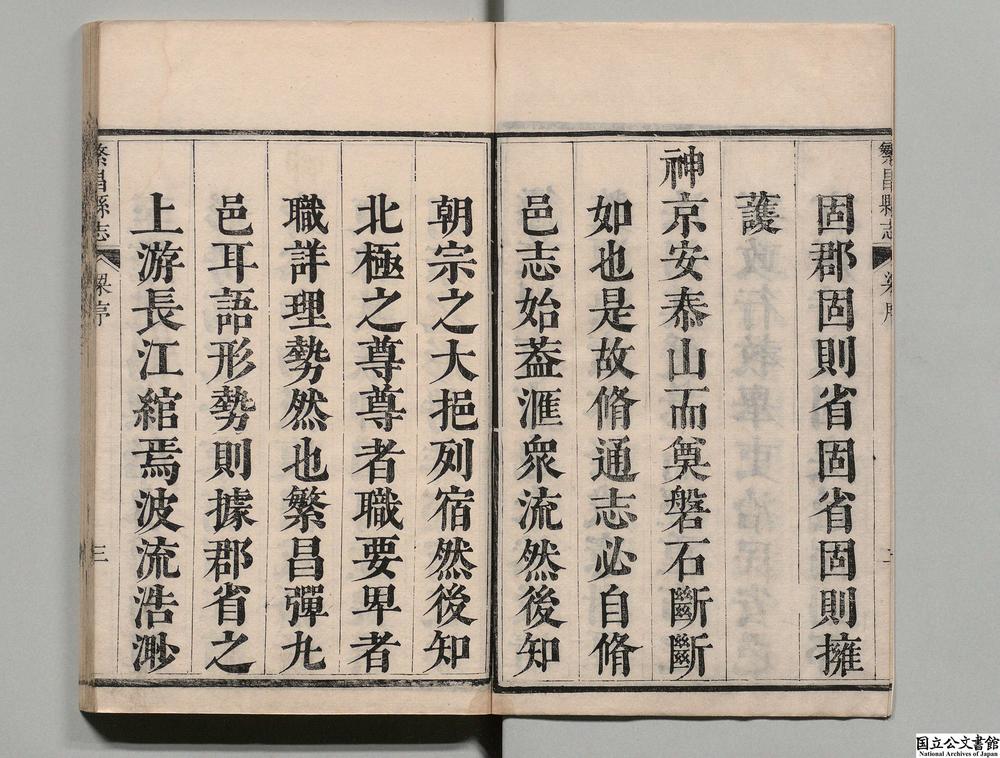 固郡固則省固省固則擁
護
神京安泰山而奠磐石斷斷
如也是故脩通志必自脩
邑志始葢滙衆流然後知
朝宗之大挹列宿然後知
北極之尊尊者職要卑者
職詳理勢然也繁昌彈九
邑耳語形勢則據郡省之
上游長江綰焉波流浩渺
繁昌縣志
梁序
三
繁昌縣志
国立公文書館
National Archives of Japan